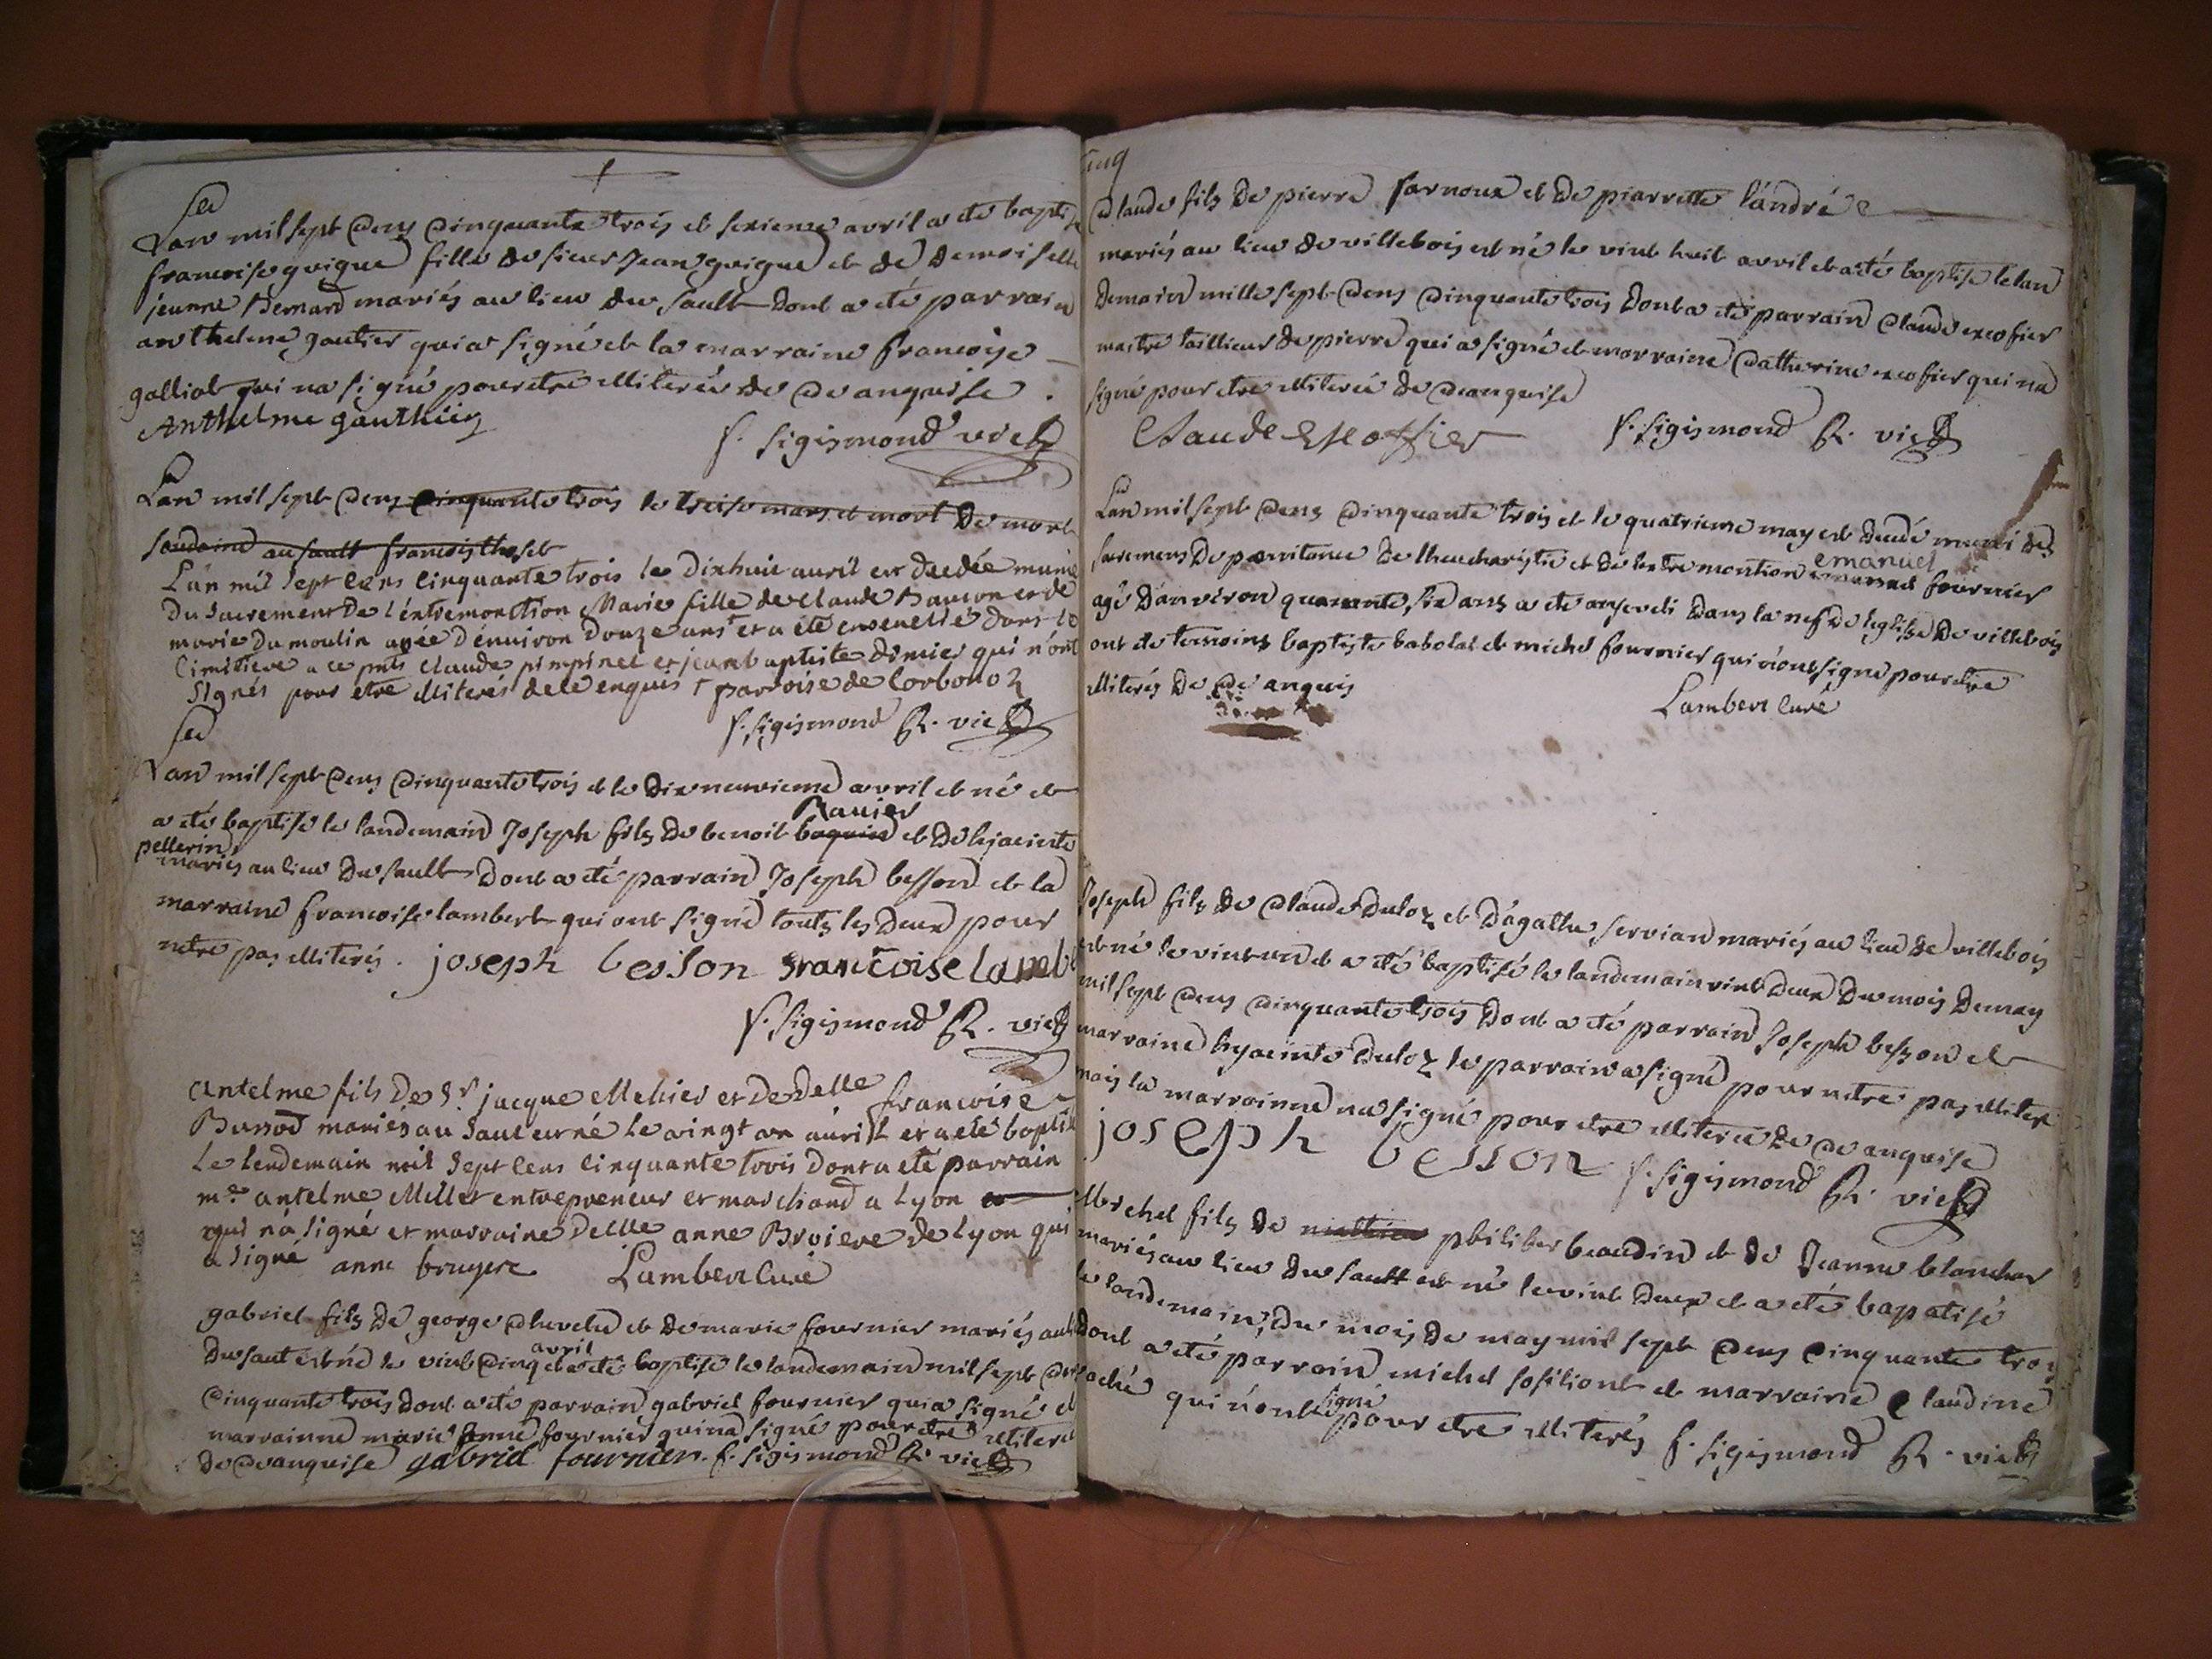 Lan mil sept cens cinquante trois et sezieme avril a eté baptisé
francoise guigue fille de sieur Jean guigue et de Demoiselle
jeanne Bernard mariés au lieu du Sault dont a eté parrain
anthelme gautier qui a signé et la marraine francoise
galliot qui na signé pour etre illiterée de ce anquise .
Anthelme gauthier
f. sigismond vic
Lan mil sept cens cinquante trois le treise mars et mort de mort
soudaine au sault francois
L'an mil sept cens cinquante trois le Dixhuit avril est decedée munie
du sacrement de l'extremonction Marie fille de claude Baucon et de
marie Dumoulin agée d'environ Douze ans et a eté ensevelie dans le
Cimitiere a ce pnts claude pimpinel et jean baptiste Dimier qui n'ont
Signés pour etre illiterés de ce enquis + parroise de Corbonoz
f. sigismond R. vic
Lan mil sept cens cinquante trois et le dix neuvieme avril et né et
Ravier
a eté baptisé le landemain Joseph fils de benoit baquin et de hejacinte
pellerin
mariés au lieu du sault dont a eté parrain Joseph besson et la
marraine francoise lambert qui ont signé touts les deux pour
netre pas illiterés . joseph besson francoise lambe
f. sigismond R. vic
Antelme fils de Sr. jacque Mehier et de Delle francoise
Bussod mariés au Saut est né le vingt un avril et a eté baptisé
le lendemain mil sept cens cinquante trois dont a eté parrain
me antelme Millet entrepreneur et marchand a Lyon et
qui n'a signé et marraine Delle anne Broiere de Lyon qui
a signé anne bruyere Lambert Curé
gabriel fils de george chevelu et de marie fournier mariés au
avril
du saut est né le vint cinq et a eté baptisé le landemain mil sept cens
cinquante trois dont a eté parrain gabriel fournier qui a signé et
marrainne marie fournier qui na signé pour etre illiteré
de ce anquise gabriel fournier. f. sigismond R. vic
cinq
Claude fils de pierre sarnoux et de piarrette l'andré
mariés au lieu de villebois est né le vint huit avril et a eté baptisé le lan
demain mille sept cens cinquante trois dont a eté parrain claude excofier
maitre taillieur de pierre qui a signé et marraine catherine excofier qui na
signé pour etre illiterée de ce anquise
Claude Excoffier f. sigismond R. vic
Lan mil sept cens cinquante trois et le quatrieme may est decedé muni des
emanuel
sacremens de penitence de lheucharistie et de lextremontion fournier
agé d'anviron quarante six ans a eté anseveli dans la nef de leglise de villebois
ont eté temoins baptiste babolat et michel fournier qui n'ont signé pour etre
illiterés de ce anquis
Lambert Curé
Joseph fils de claude duloz et d'agathe servian mariés au lieu de villebois
est né le vint un et a eté baptisé le landemain vint deux du mois de may
mil sept cens cinquante trois dont a eté parrain Joseph besson et
marraine hyacinte duloz le parrain a signé pour netre pas illiteré
mais la marrainne na signé pour etre illiterée de ce anquise
joseph besson f. sigismond R. vic
Michel fils de mathieu philiber beaudin et de Jeanne blanchar
mariés au lieu du sault est né le vint deux et a eté bapatisé
le landemain, du mois de may mil sept cens cinquante trois
dont a eté parrain michel et marraine claudine
signé
qui n'ont pour etre illiterés f. sigismond R. vic